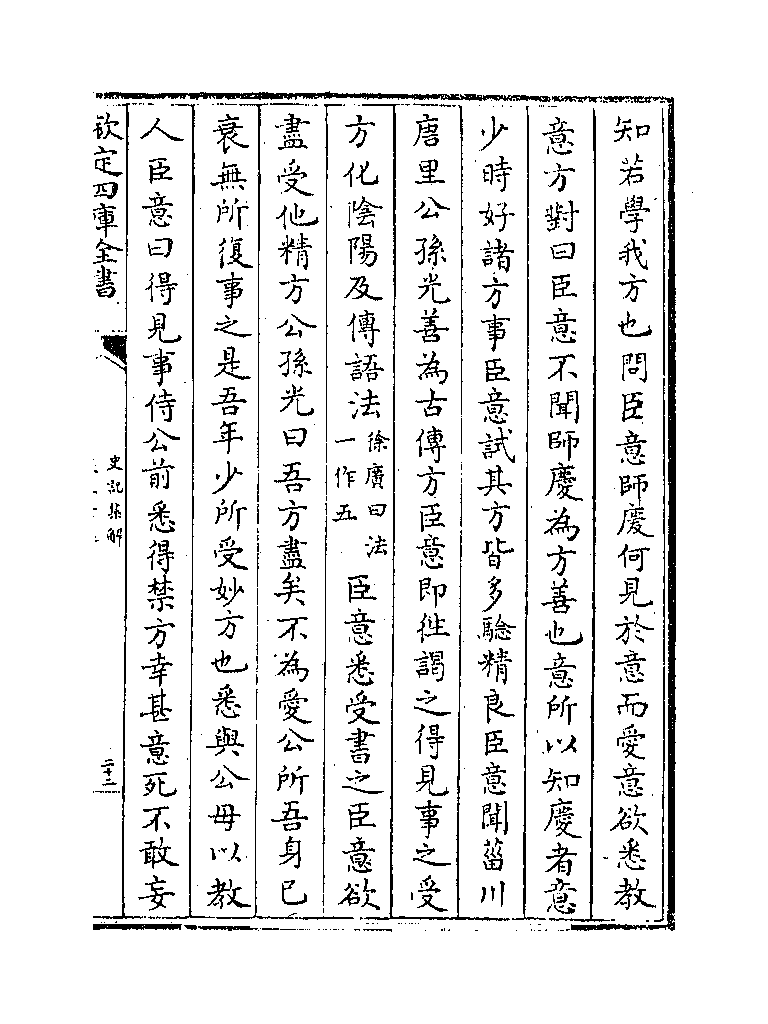 知若學我方也問臣意師慶何見於意而愛意欲悉教
意方對曰臣意不聞師慶為方善也意所以知慶者意
少時好諸方事臣意試其方皆多驗精良臣意聞菑川
唐里公孫光善為古傳方臣意即徃謁之得見事之受
方化陰陽及傳語法徐廣曰法一作五臣意悉受書之臣意欲
盡受他精方公孫光曰吾方盡矣不為愛公所吾身已
衰無所復事之是吾年少所受妙方也悉與公毋以教
人臣意曰得見事侍公前悉得禁方幸甚意死不敢妄
欽定四庫全書
史記集解
二十二